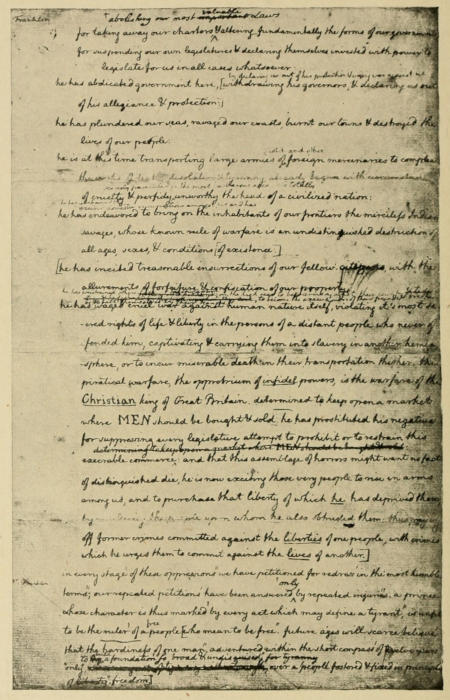 Franklin
valuable
"abolishing our most important Laws
for taking away our charters & altering fundamentally the forms of our governments
for suspending our own legislatures & declaring themselves invested with power to
legislate for us in all cases whatsoever:
by declaring us out of his protection & waging war against us
he has abdicated government here, [withdrawing his governors, & declaring us out
of his allegiance & protection:]
he has plundered our seas, ravaged our coasts, burnt our towns & destroyed the
lives of our people:
he is at this time transporting large armies of foreign mercenaries to compleat
the works of death, desolation & tyranny already begun with circumstances
of cruelty & perfidy unworthy the head of a civilized nation:
he has endeavored to bring on the inhabitants of our frontiers the merciless Indian
savages, whose known rule of warfare is an undistinguished destruction of
all ages, sexes, & conditions [of existence.]
[he has incited treasonable insurrections of our fellow with the
allurements of forfeiture & confiscation of our property:
he has waged cruel war against human nature itself, violating it's most sa-
-cred rights of life & liberty in the persons of a distant people who never of-
fended him, captivating & carrying them into slavery in another hemis-
-sphere, or to incur miserable death in their transportation thither. this
piratical warfare, the opprobrium of infidel powers, is the warfare of the
Christian king of Great Britain. determined to keep open a market
where MEN should be bought & sold, he has prostituted his negative
for suppressing every legislative attempt to prohibit or to restrain this
determining to keep open a market where MEN should be bought & sold
execrable commerce: and that this assemblage of horrors might want no fact
of distinguished die, he is now exciting those very people to rise in arms
among us, and to purchase that liberty of which he has deprived them,
by the people upon whom he also obtruded them: thus paying
off former crimes committed against the liberties of one people, with crimes
which he urges them to commit against the lives of another.]
in every stage of these oppressions we have petitioned for redress in the most humble
only
terms; our repeated petitions have been answered by repeated injuries. a prince
whose character is thus marked by every act which may define a tyrant, is unfit
free
to be the ruler of a people [who mean to be free. future ages will scarce believe
that the hardiness of one man, adventured within the short compass of twelve years
to a foundation so broad & undisguised, for tyranny
only, over a people fostered & fixed in principles
of freedom]